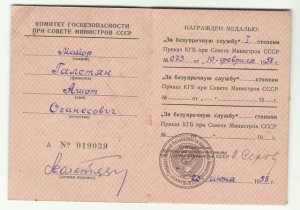 КОМИТЕТ ГОСБЕЗОПАСНОСТИ
ПРИ СОВЕТЕ МИНИСТРОВ СССР
Майор
Галстян
Ашот
Оганесович
А № 019039
НАГРАЖДЕН МЕДАЛЬЮ:
„За безупречную службу" I степени
Приказ КГБ при Совете Министров СССР
№ 023 от „10" февраля 1958 г.
„За безупречную службу" степени
Приказ КГБ при Совете Министров СССР
№ от „ " 19 г.
„За безупречную службу" степени
Приказ КГБ при Совете Министров СССР
№ от „ " 19 г.
И. Серов
июня 1958 г.